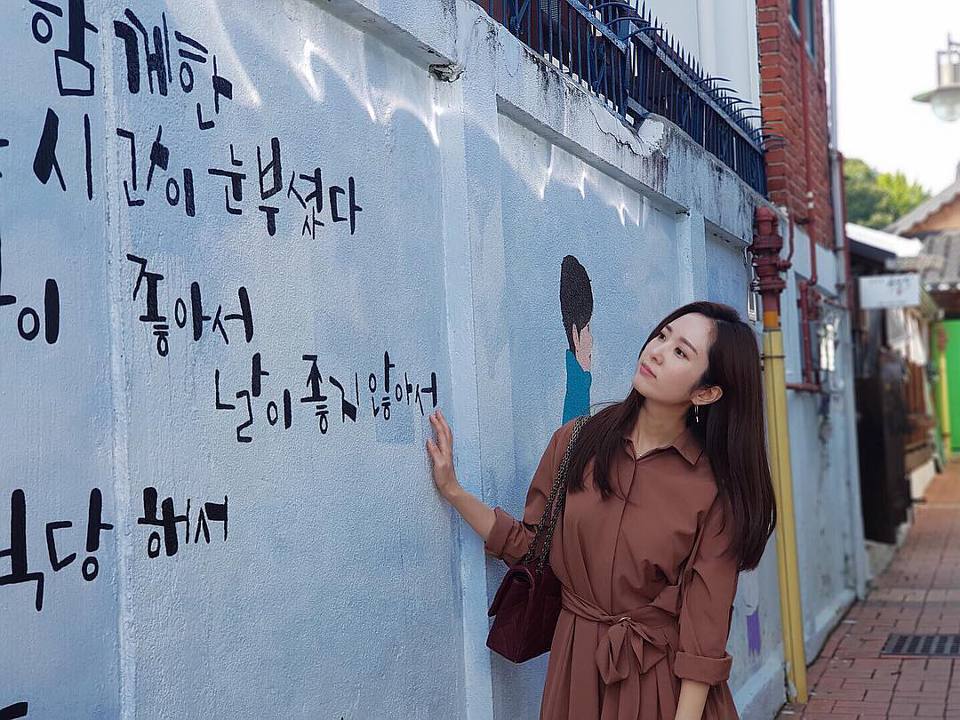 함께한
시간이 눈부셨다
날이 좋아서
날이 좋지 않아서
적당해서